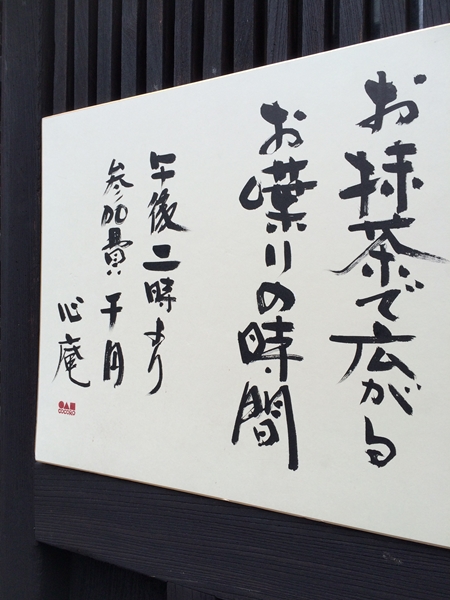 お抹茶で広がる
お喋りの時間
午後二時より
参加費 千円
心庵